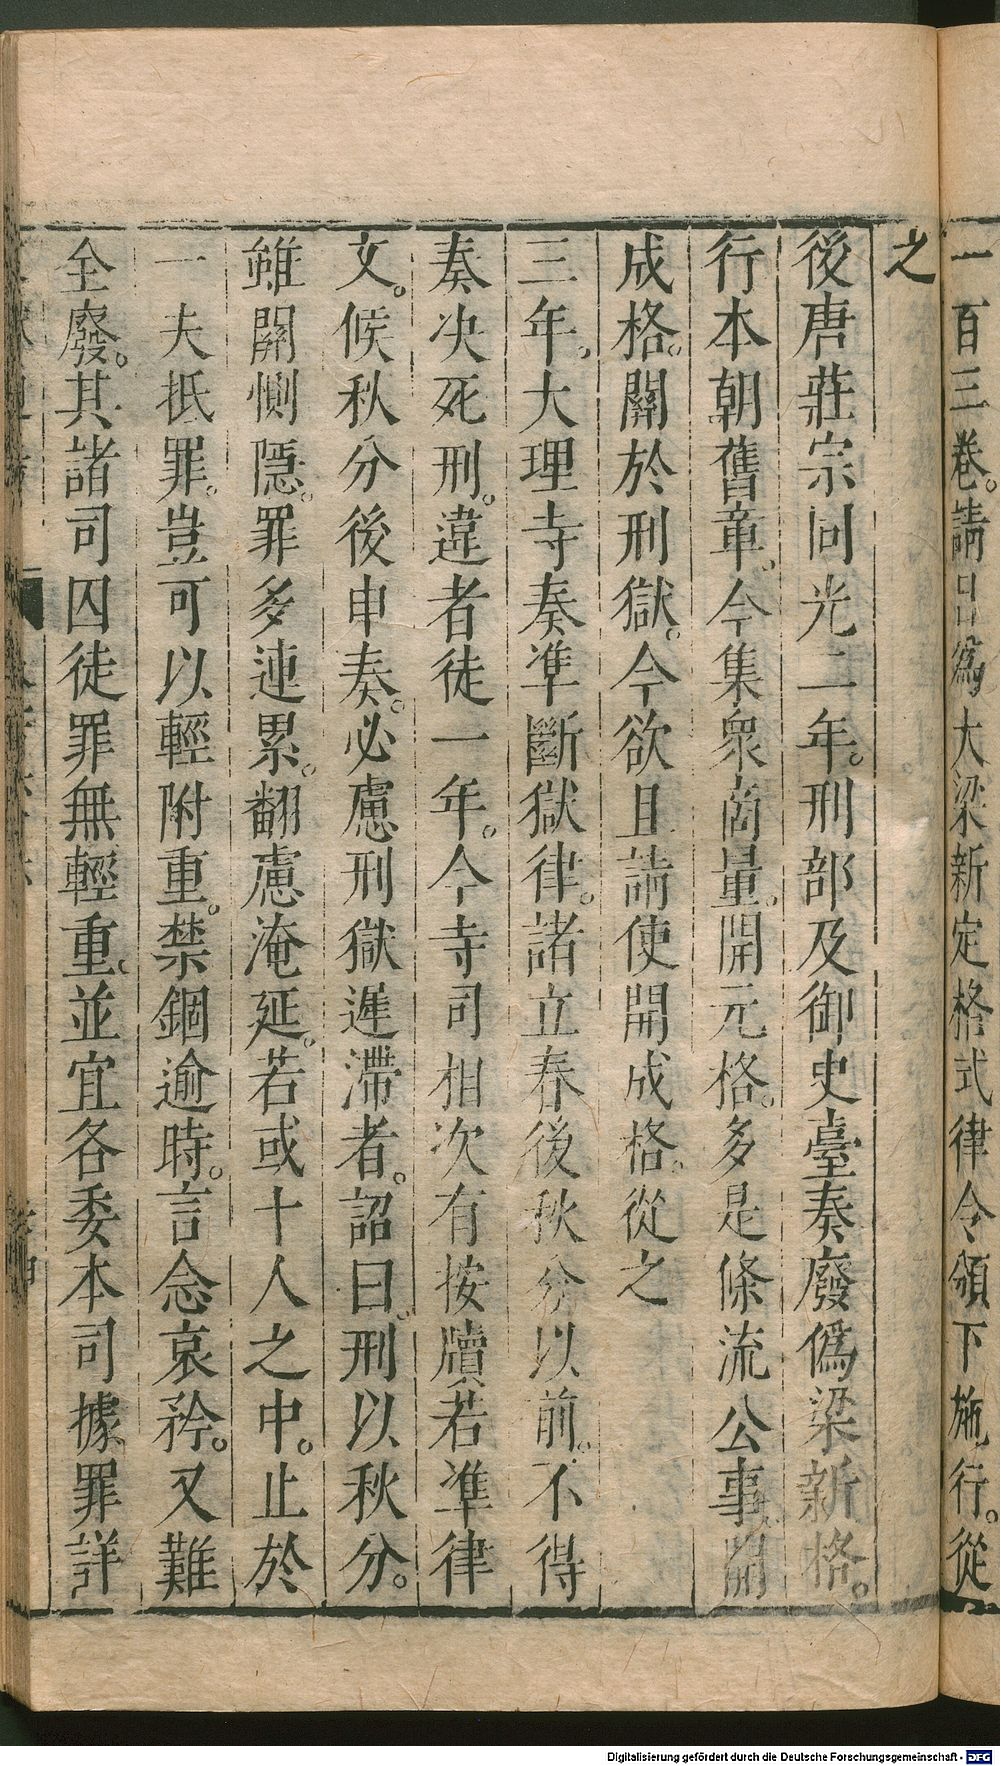 一百三卷。請目爲大梁新定格式律令頒下施行。從
之
後唐莊宗同光二年。刑部及御史臺奏廢僞梁新格。
行本朝舊章。今集衆商量。開元格。多是條流公事。開
成格。關於刑獄。今欲且請使開成格。從之
三年。大理寺奏準斷獄律。諸立春後秋分以前。不得
奏决死刑。違者徒一年。今寺司相次有按牘若準律
文。候秋分後申奏。必慮刑獄遲滯者。詔曰。刑以秋分。
雖關惻隱。罪多連累。翻慮淹延。若或十人之中。止於
一夫抵罪。豈可以輕附重。禁錮逾時。言念哀矜。又難
全廢。其諸司囚徒罪無輕重。並宜各委本司據罪詳
Digitalisierung gefördert durch die Deutsche Forschungsgemeinschaft - DFG